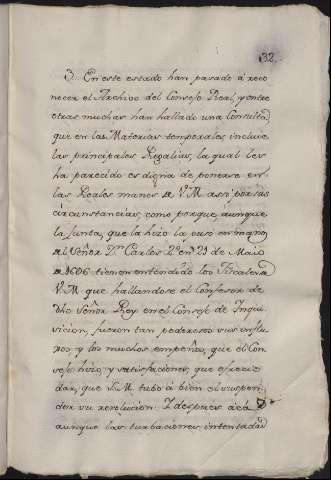 32.
3. En este estado han pasado á reco
nocer el Archivo del Consejo Real, y entre
otras muchas han hallado una Consulta
que en las Materias temporales incluye
las principales Regalias, la qual les
ha parecido es digna de ponerse en
las Reales manos de V.M. assi por sus
circunstancias, como porque, aunque
la Junta, que la hizo la puso en manos
del Señor Dn. Carlos 2o. en 21 de Maio
de 1696 tienen entendido los Fiscales de
V.M. que hallandose el Confesor de
dho Señor Rey en el Consejo de Inqui
sicion, fueron tan poderosos sus influ
xos, y los muchos empeños, que el Con
sejo hizo, y satisfacciones, que ofrecio
dar, que S.M. tubo á bien el suspen
der su resolucion. Y despues acá
aunque las turbaciones, intentadas